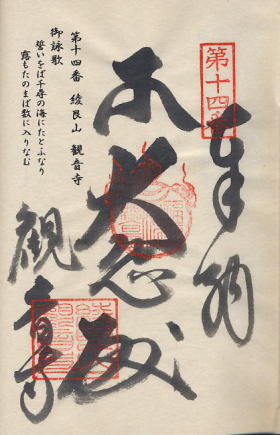 第十四番
奉納
大悲殿
第十四番 綾艮山 観音寺
御詠歌
誓いをば千尋の海にたとふなり
露もたのまば数に入りなむ
観音寺